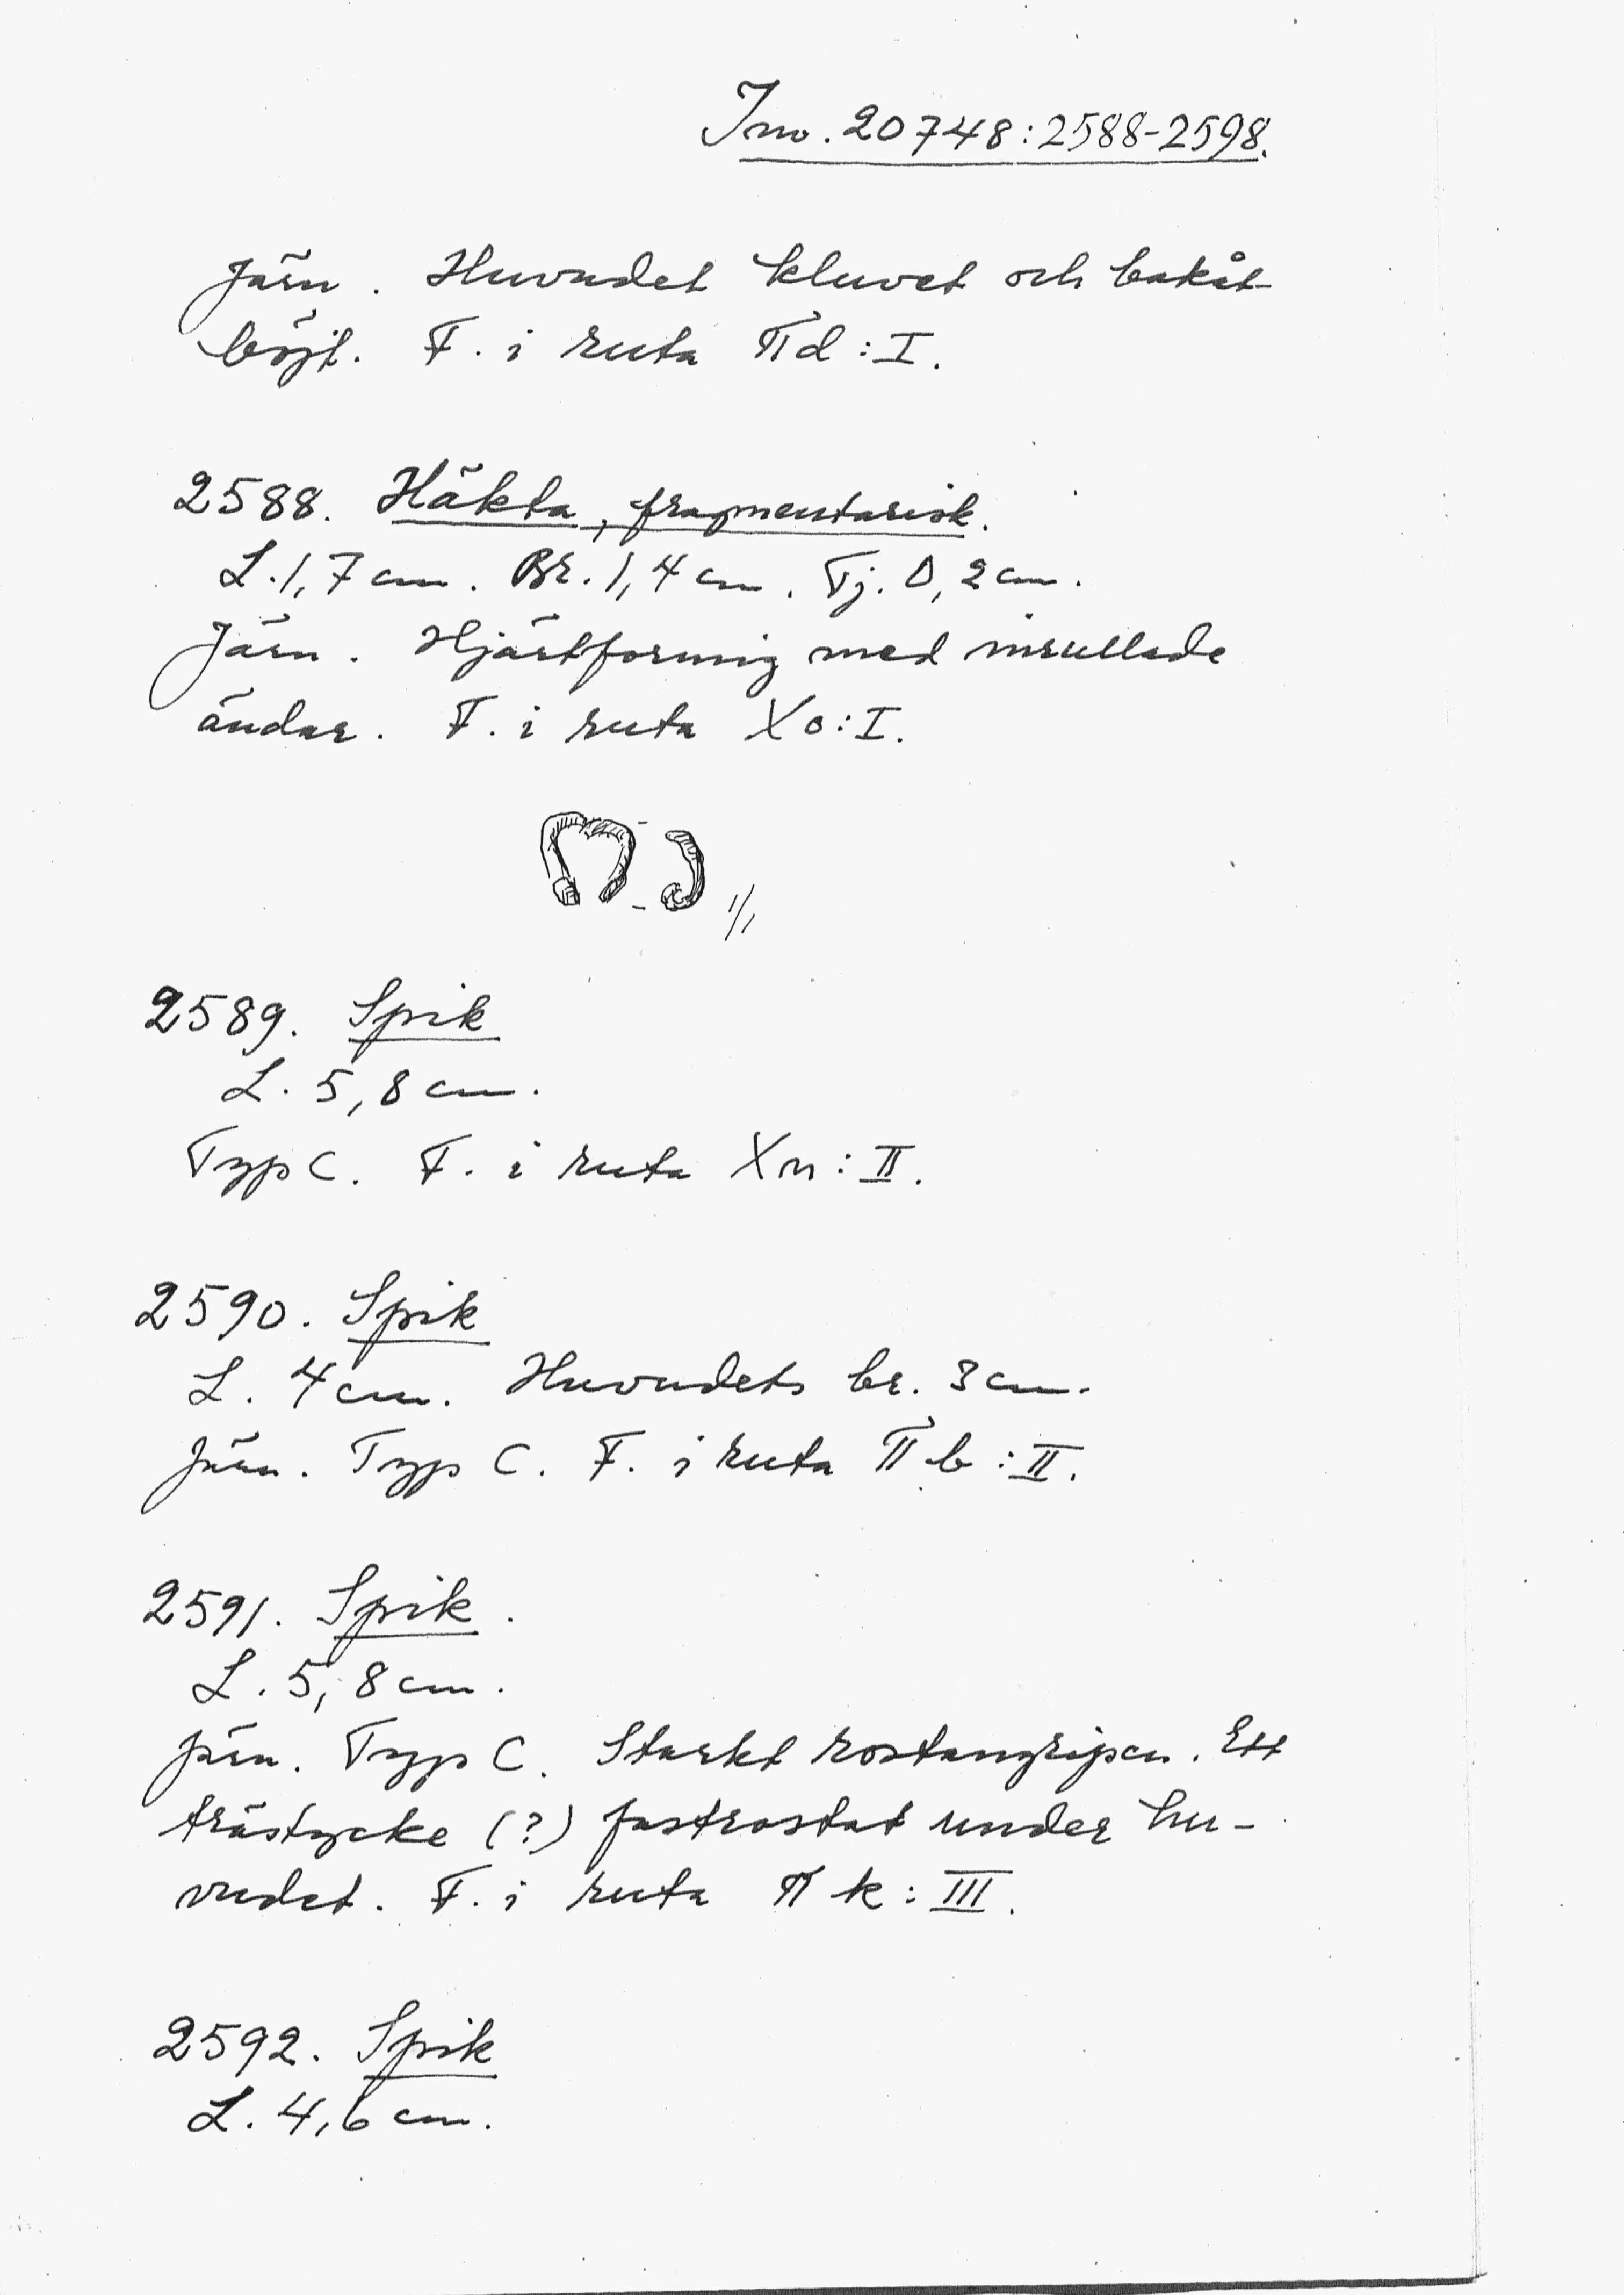 Inv. 20748:2588-2598.
Järn. Huvudet kluvet och bakåt-
böjt. F. i ruta π d : I.
2588. Häkta, fragmentarisk.
L. 1,7 cm. Br. 1,4 cm. Tj. 0,2 cm.
Järn. Hjärtformig med inrullade
ändar. F. i ruta X o : I.
1/1
2589. Spik
L. 5,8 cm.
Typ C. F. i ruta X n : II.
2590. Spik
L. 4 cm. Huvudets br. 3 cm.
Järn. Typ C. F. i ruta π b : II.
2591. Spik.
L. 5,8 cm.
Järn. Typ C. Starkt rostangripen. Ett
trästycke (?) fastrostat under hu-
vudet. F. i ruta π k : III.
2592. Spik
L. 4,6 cm.